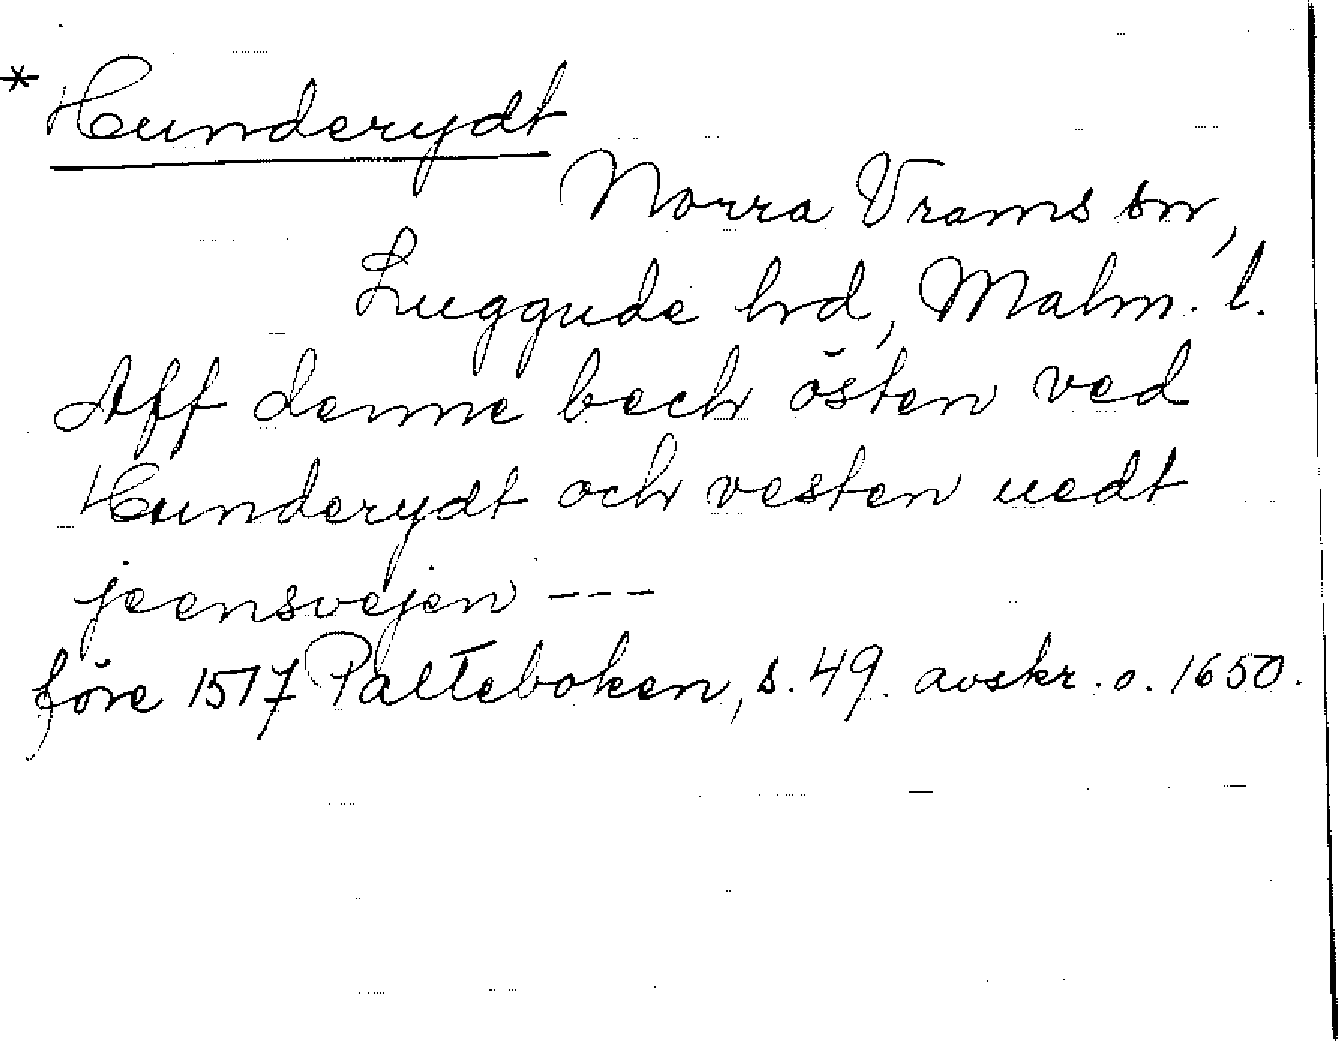 * Hunderydt
Norra Vrams sn,
Luggude hrd, Malm. l.
Aff denne bech östen ved
Hunderydt och vesten uedt
jeensvejen ---
före 1517 Palteboken, s. 49. avskr. o. 1650.